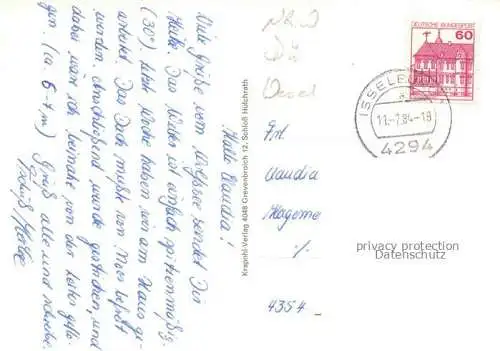 Hallo Claudia!
Viele Grüße vom Wolfssee sendet Dir
Heike. Das Wetter ist einfach spitzenmäßig
(30°). Letzte Woche haben wir am Haus ge-
arbeitet. Das Dach mußte von Moos befreit
werden. Anschließend wurde gestrichen, und
dabei wär ich beinahe von der Leiter geflo-
gen. (ca 6-7 m) Grüß alle und schreibe.
Tschüß Heike
Krapohl-Verlag 4048 Grevenbroich 12, Schloß Hülchrath
NRW
Dü
Wesel
DEUTSCHE BUNDESPOST
60
ISSELBURG
11.-7.84-18
4294
Frl.
Claudia
Hageme
4354
privacy protection
Datenschutz